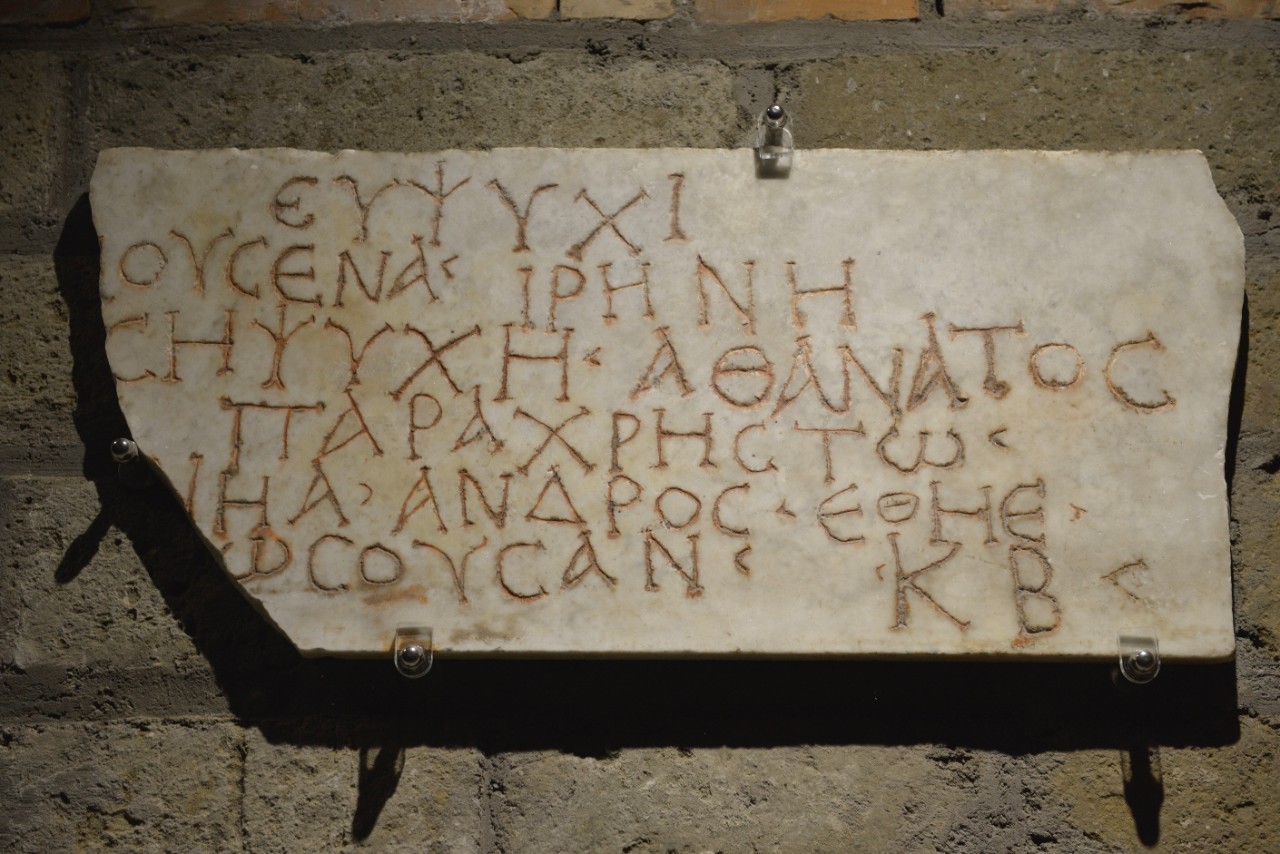 ΕΥΨΥΧΙ
ΟΥϹΕΝΑ· ΙΡΗΝΗ
ϹΗΨΥΧΗ· ΑΘΑΝΑΤΟϹ
ΠΑΡΑΧΡΗϹΤΩ·
ΗΑ· ΑΝΔΡΟϹ· ΕΘΗΕ·
ΩϹΟΥϹΑΝ· ·ΚΒ·